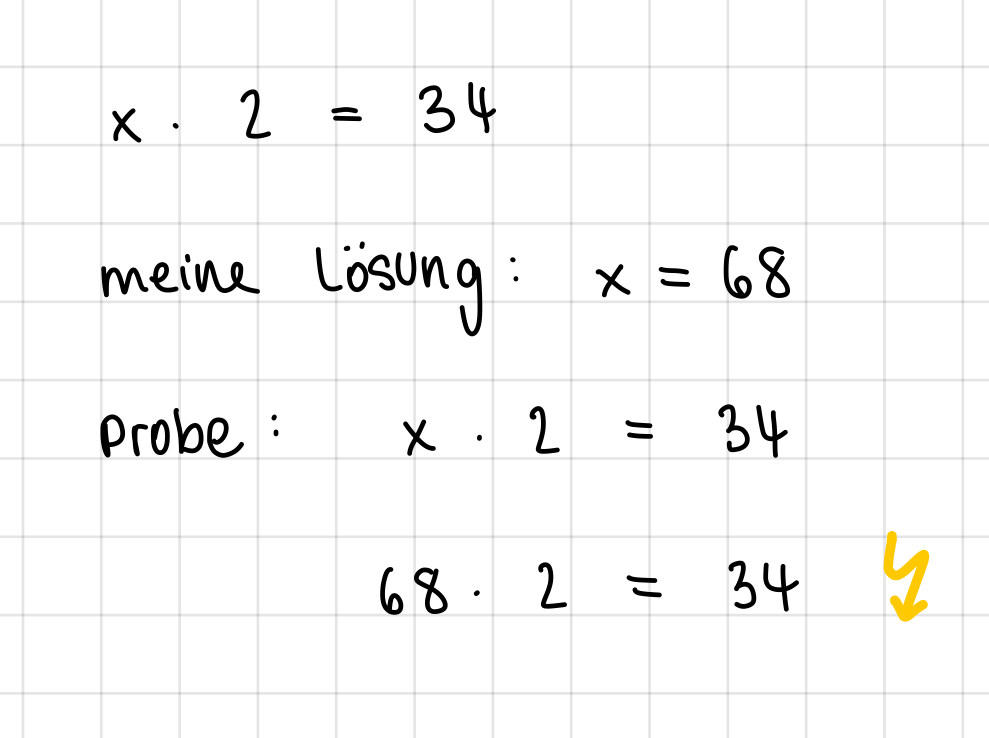 x · 2 = 34
meine Lösung: x = 68
Probe: x · 2 = 34
68 · 2 = 34